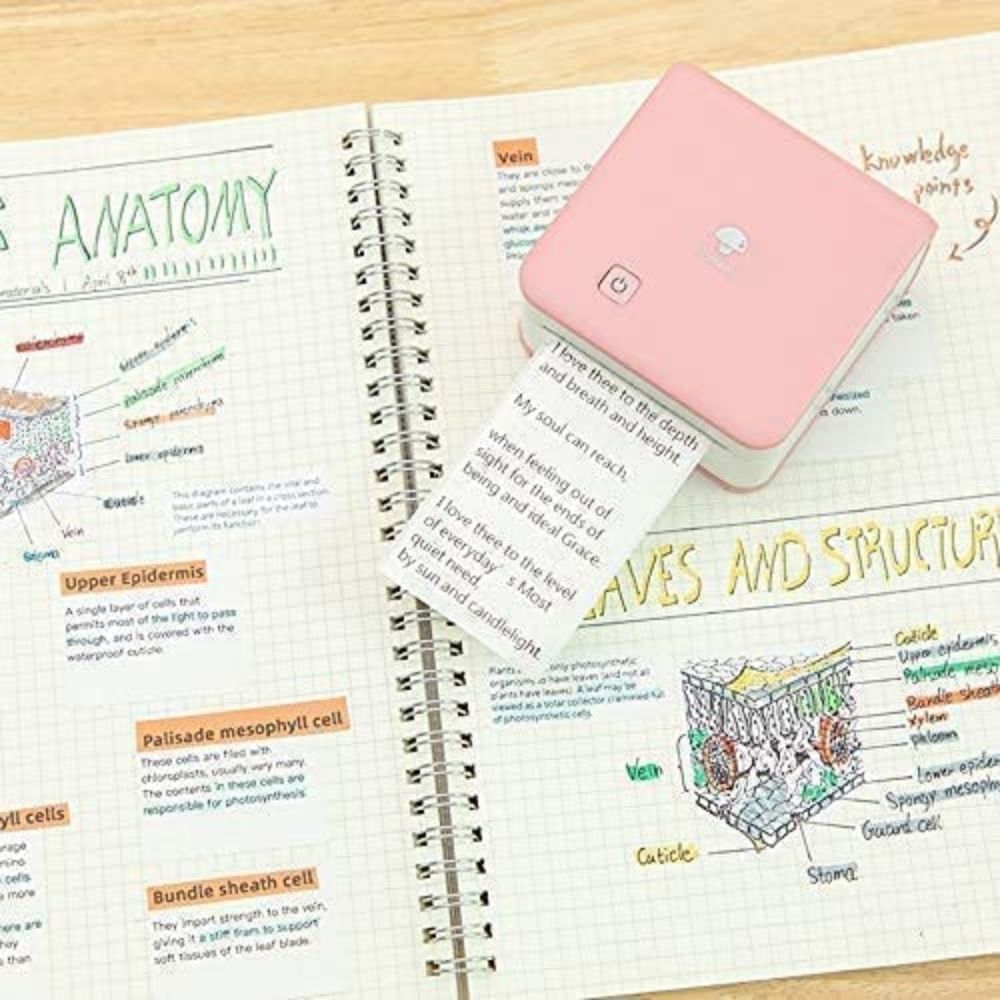 ANATOMY
April 8th
palisade
Cuticle
Vein
Stoma
This diagram contains the vital and
basic parts of a leaf in a cross section.
These are necessary for the leaf to
perform its function.
Upper Epidermis
A single layer of cells that
permits most of the light to pass
through, and is covered with the
waterproof cuticle.
Palisade mesophyll cell
These cells are filed with
chloroplasts, usually very many.
The contents in these cells are
responsible for photosynthesis
cells
Bundle sheath cell
They import strength to the vein,
giving it a stiff fram to support
soft tissues of the leaf blade.
Vein
They are close to
and
supply them
water and
Knowledge
points
taken
down.
I love thee to the depth
and breath and height.
My soul can reach,
when feeling out of
sight for the ends of
being and ideal Grace.
I love thee to the level
of everyday' s Most
quiet need,
by sun and candlelight.
AND STRUCTUR
only photosynthetic
have leaves (and not all
plants have leaves). A leaf may be
viewed as a solar collector crammed full
of photosynthetic cells.
Cuticle
Upper epidermis
Palisade meso
Bundle sheath
Xylem
phloem
Lower epider
Spongy mesoph
Guard cell
Stoma
Vein
Cuticle